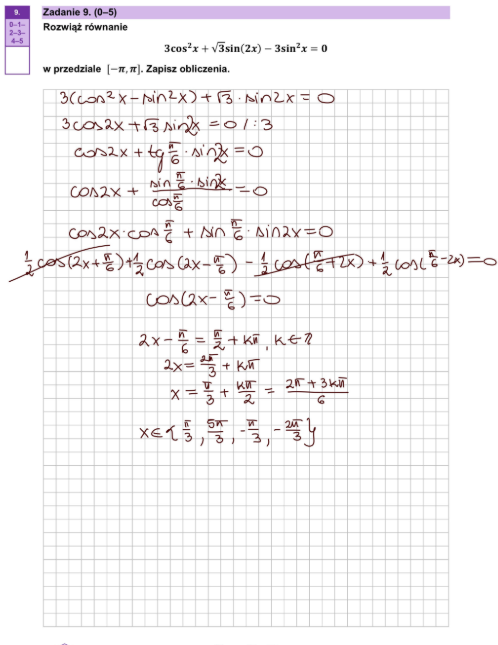 9. Zadanie 9. (0–5)
0–1–
2–3–
4–5
Rozwiąż równanie
3cos²x + √3sin(2x) − 3sin²x = 0
w przedziale [−π, π]. Zapisz obliczenia.
3(cos²x − sin²x) + √3 · sin2x = 0
3cos2x + √3 sin2x = 0 / : 3
cos2x + tg π/6 · sin2x = 0
cos2x + (sin π/6 · sin2x)/(cos π/6) = 0
cos2x · cos π/6 + sin π/6 · sin2x = 0
1/2 cos(2x + π/6) + 1/2 cos(2x − π/6) − 1/2 cos(π/6 + 2x) + 1/2 cos(π/6 − 2x) = 0
cos(2x − π/6) = 0
2x − π/6 = π/2 + kπ, k ∈ ℤ
2x = 2π/3 + kπ
x = π/3 + kπ/2 = (2π + 3kπ)/6
x ∈ {π/3, 5π/3, −π/3, −2π/3}